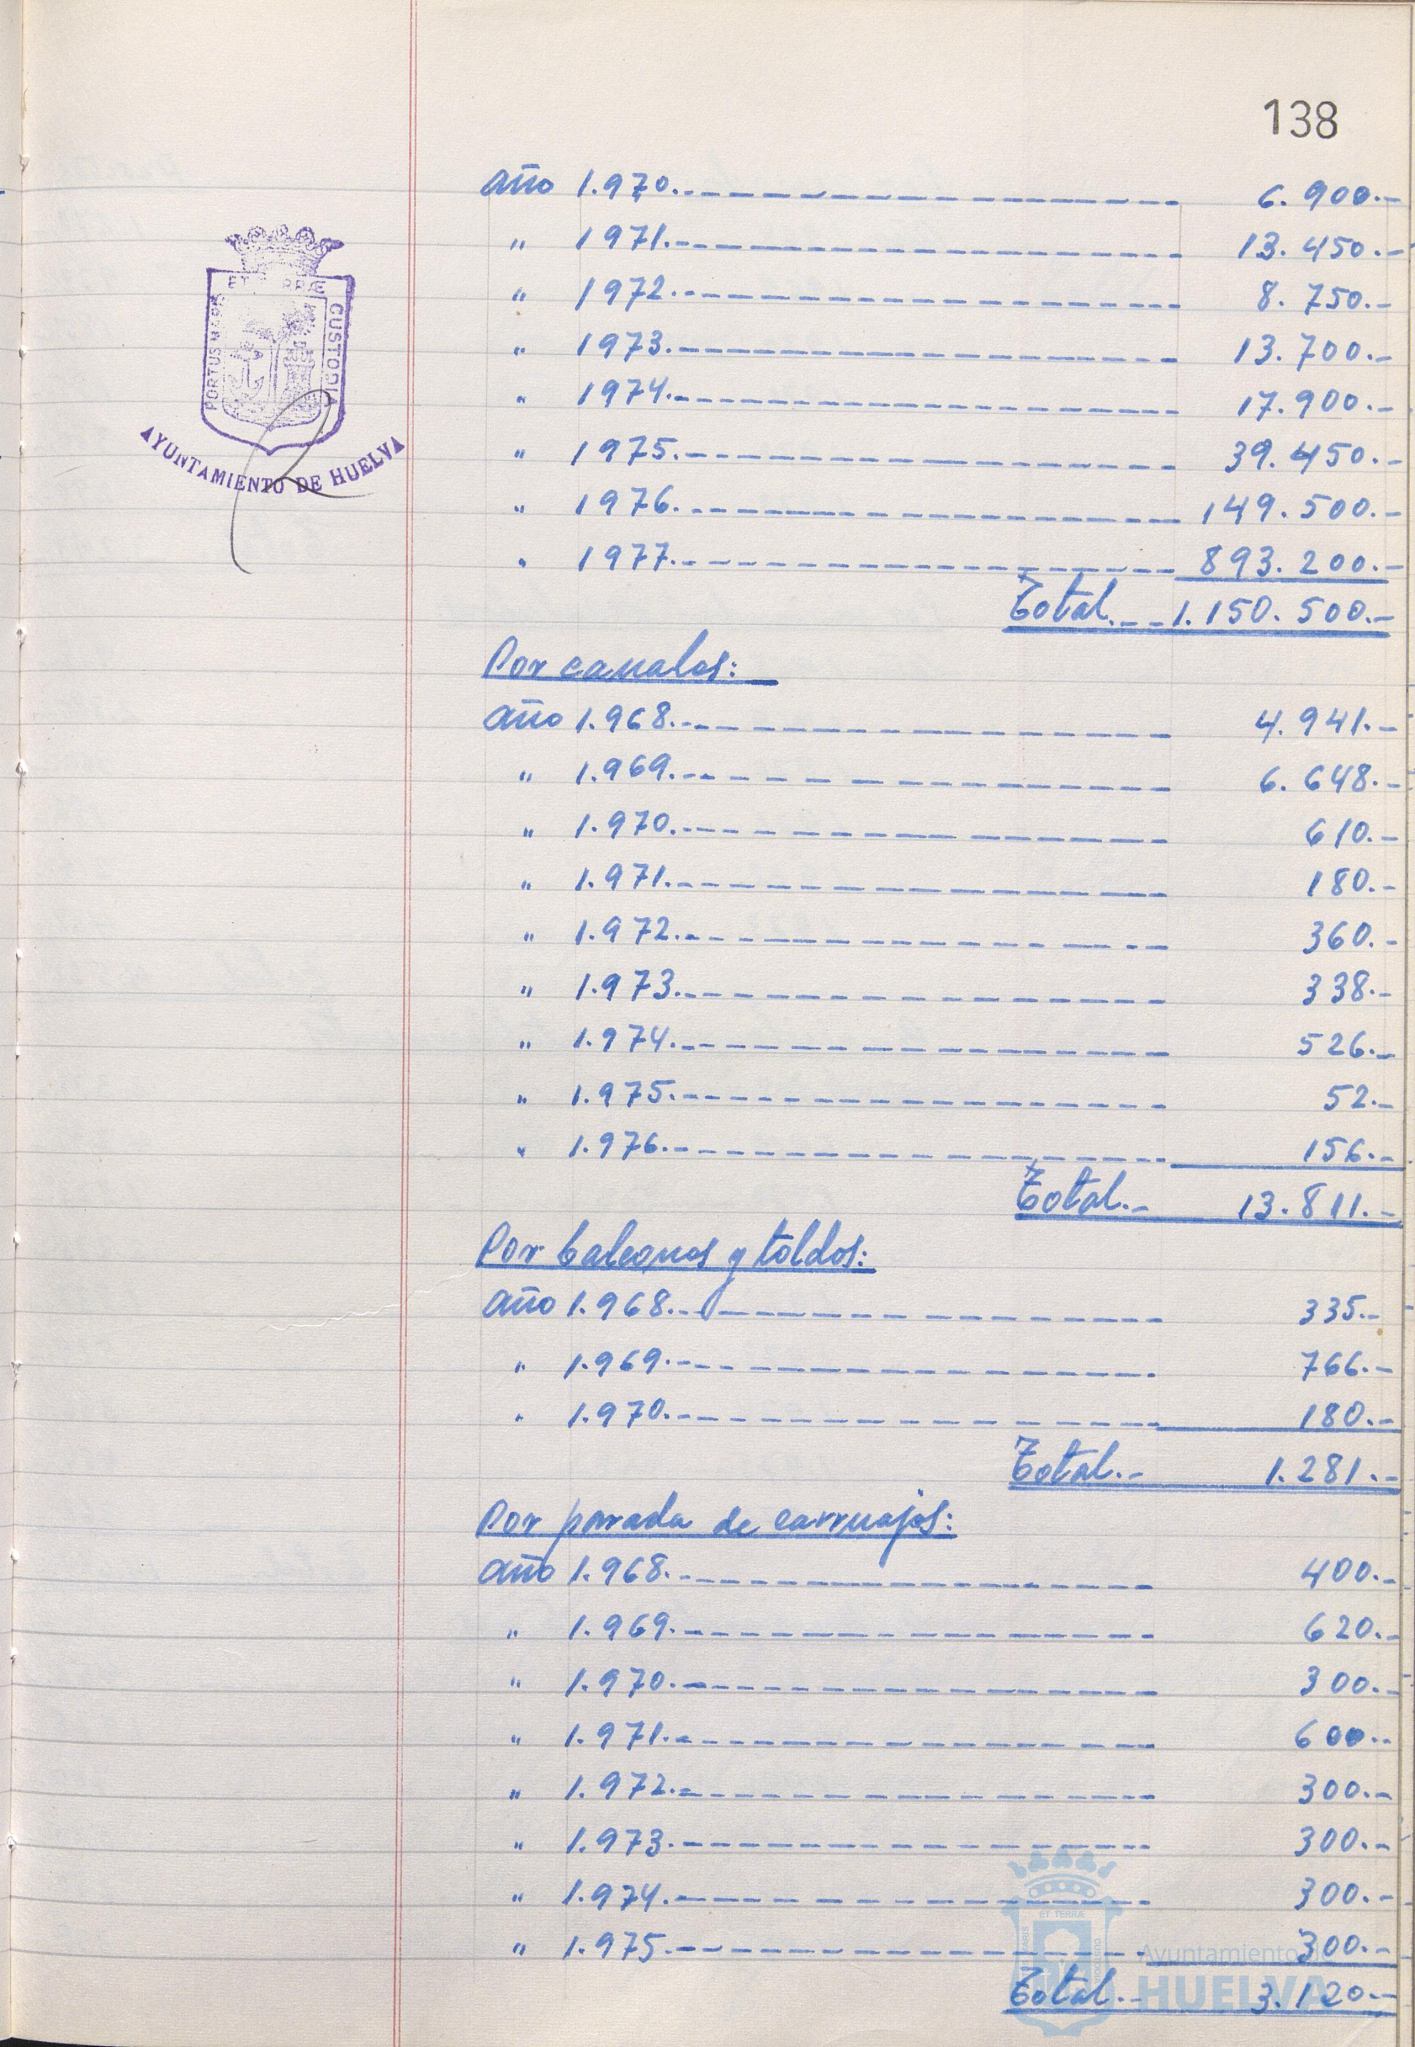 138
año 1.970.- 6.900.-
" 1971.- 13.450.-
" 1972.- 8.750.-
" 1973.- 13.700.-
" 1974.- 17.900.-
" 1975.- 39.450.-
" 1976.- 149.500.-
" 1977.- 893.200.-
Total.- 1.150.500.-
PORTUS MARIS ET TERRÆ CUSTODIA
AYUNTAMIENTO DE HUELVA
Por canales:
año 1.968.- 4.941.-
" 1.969.- 6.648.-
" 1.970.- 610.-
" 1.971.- 180.-
" 1.972.- 360.-
" 1.973.- 338.-
" 1.974.- 526.-
" 1.975.- 52.-
" 1.976.- 156.-
Total.- 13.811.-
Por balcones y toldos:
año 1.968.- 335.-
" 1.969.- 766.-
" 1.970.- 180.-
Total.- 1.281.-
Por parada de carruajes:
año 1.968.- 400.-
" 1.969.- 620.-
" 1.970.- 300.-
" 1.971.- 600.-
" 1.972.- 300.-
" 1.973.- 300.-
" 1.974.- 300.-
" 1.975.- 300.-
Total.- 3.120.-
Ayuntamiento de
HUELVA